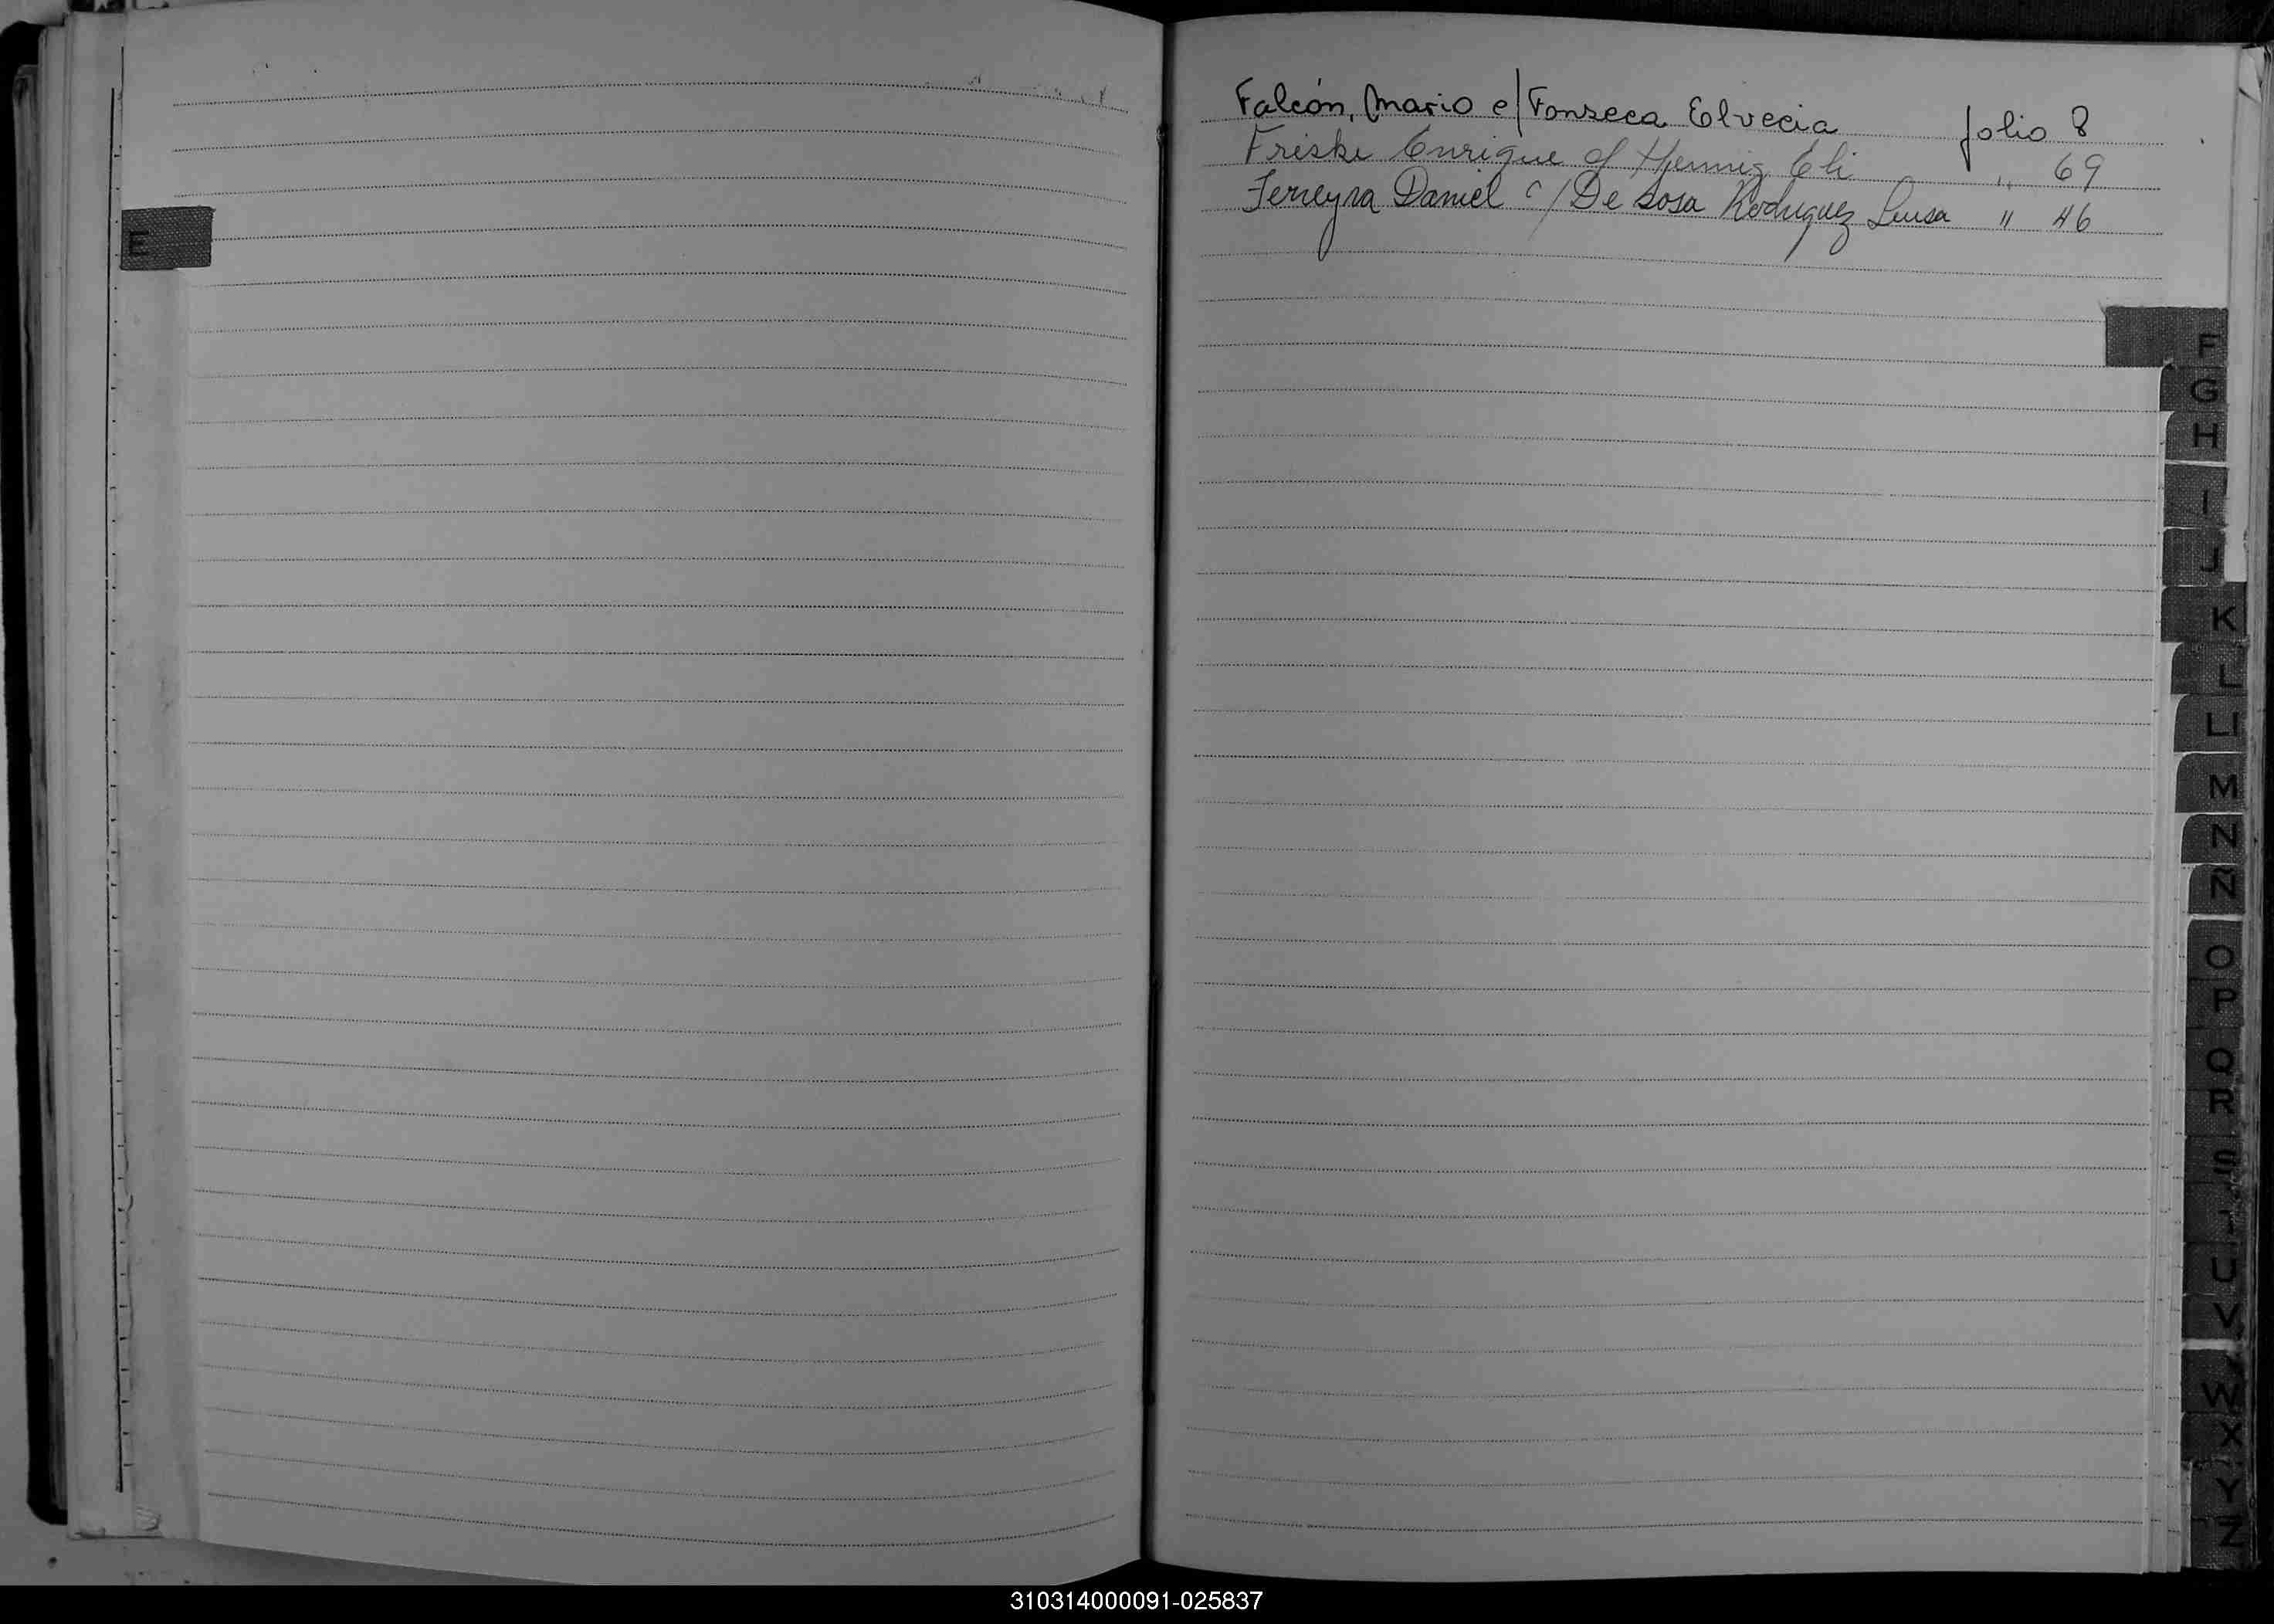 Falcón, Mario c/ Fonseca Elvecia folio 8
Friske Enrique c/ Hennig Eli " 69
Ferreyra Daniel c/ De Sosa Rodriguez Luisa " 46
E
F
G
H
I
J
K
L
Ll
M
N
Ñ
O
P
Q
R
S
T
U
V
W
X
Y
Z
310314000091-025837